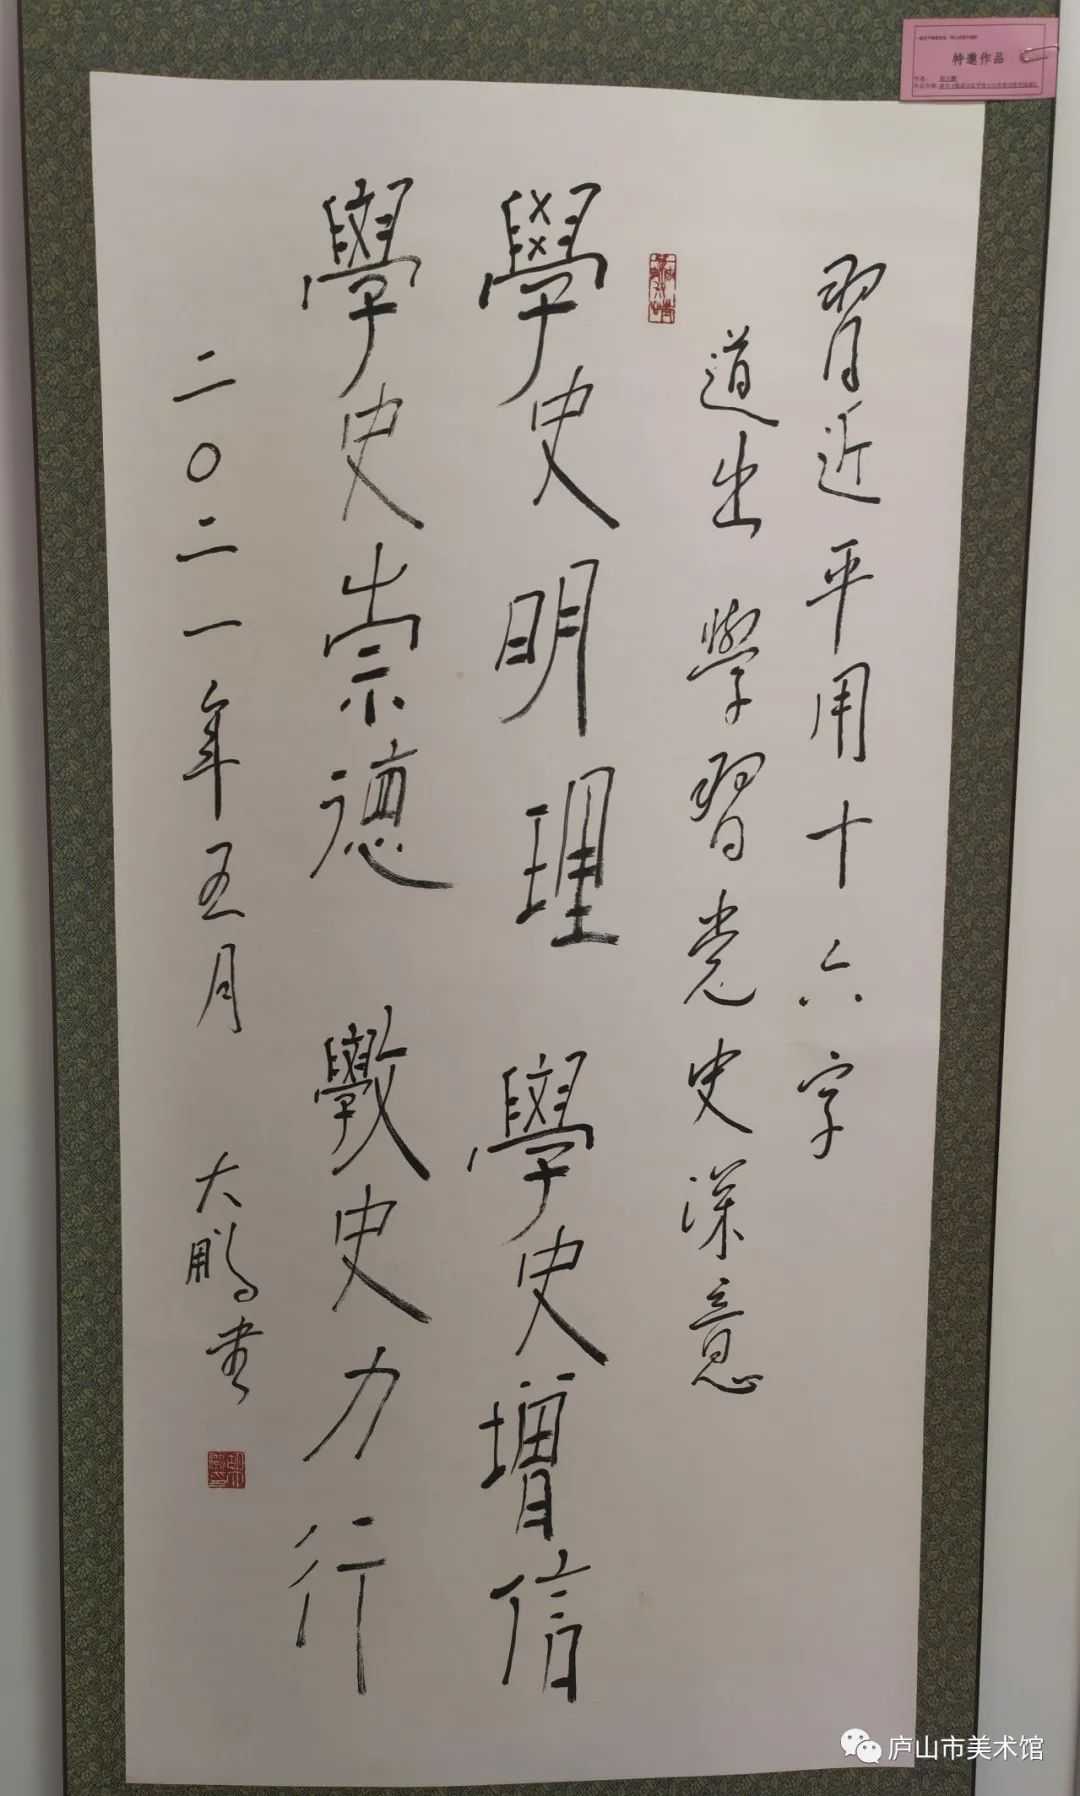 習近平用十六字
道出學習党史深意
學史明理 學史增信
學史崇德 斆史力行
二〇二一年五月 大鹏書
特邀作品
庐山市美术馆